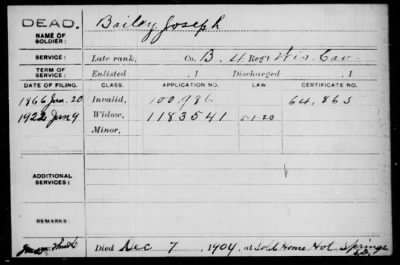 DEAD.
Bailey, Joseph
NAME OF
SOLDIER:
SERVICE:
Late rank, Co. B, 4 Reg't Wis. Cav
TERM OF
SERVICE:
Enlisted , 1 Discharged , 1
DATE OF FILING. CLASS. APPLICATION NO. LAW CERTIFICATE NO.
1866 Jan. 20 Invalid, 100,986 64,863
1922 Jun 9 Widow, 1183541 5-1-20
Minor,
ADDITIONAL
SERVICES:
REMARKS:
Died Dec 7, 1904, at Sold Home Hot Springs
S.D.